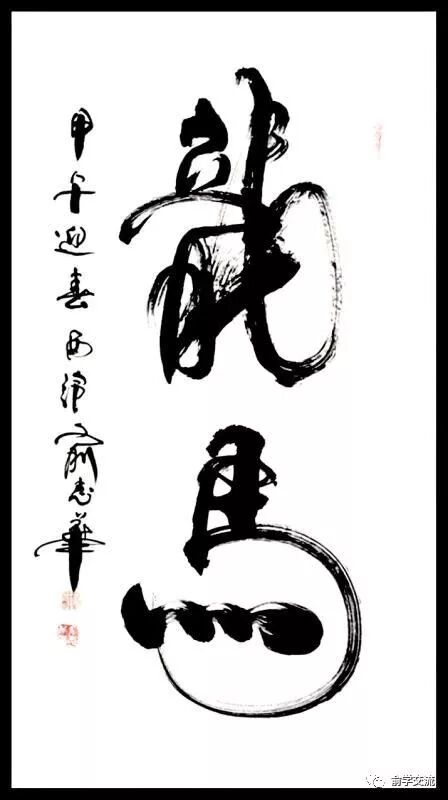 龍馬
甲午迎春西俞華
俞学交流